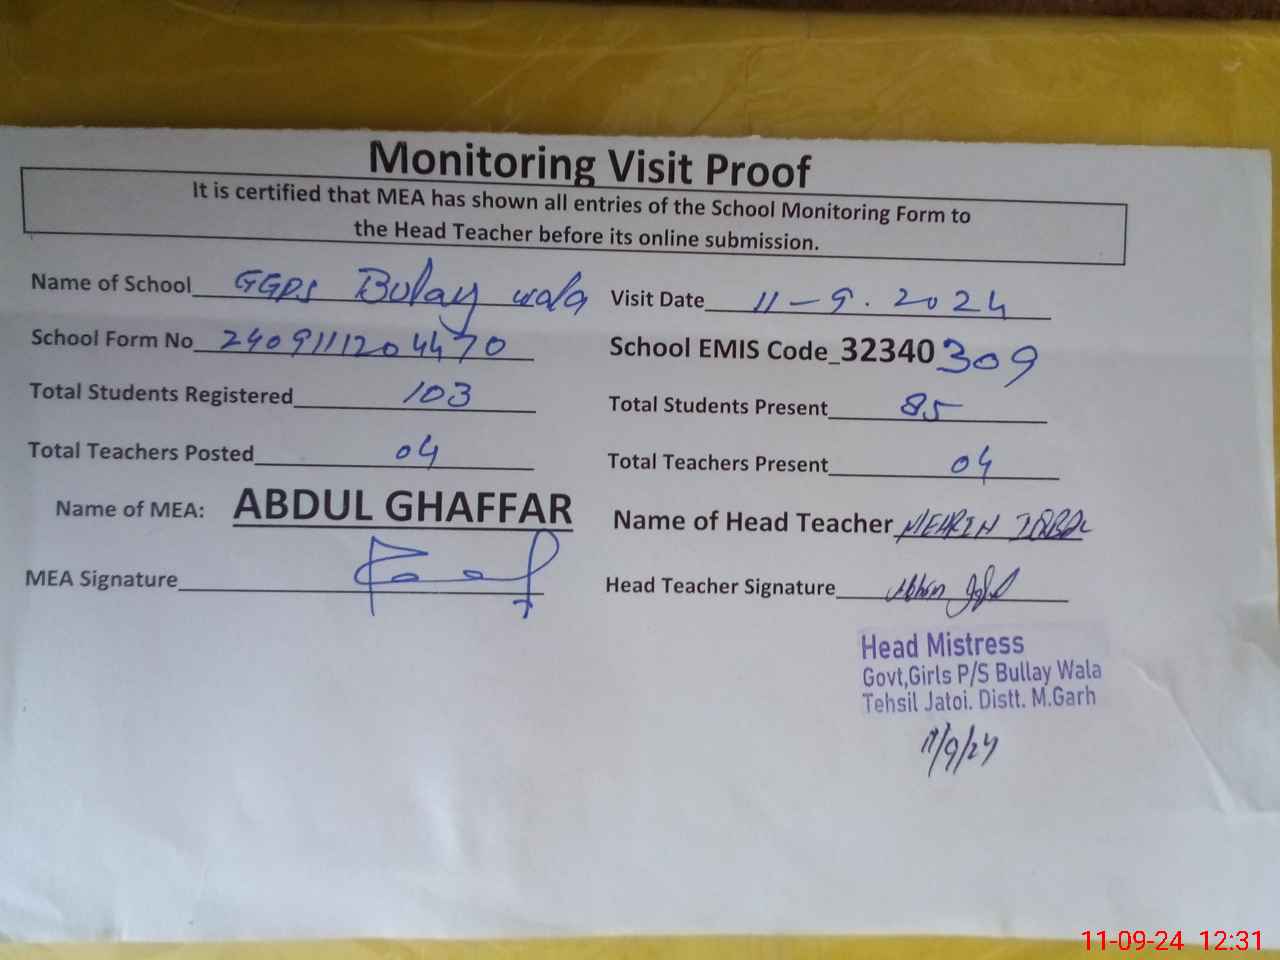 Monitoring Visit Proof
It is certified that MEA has shown all entries of the School Monitoring Form to
the Head Teacher before its online submission.
Name of School GGPS Bulay wala Visit Date 11-9.2024
School Form No 240911120 4470 School EMIS Code_32340309
Total Students Registered 103 Total Students Present 85
Total Teachers Posted 04 Total Teachers Present 04
Name of MEA: ABDUL GHAFFAR Name of Head Teacher MEHRIN IQBAL
MEA Signature Head Teacher Signature
Head Mistress
Govt,Girls P/S Bullay Wala
Tehsil Jatoi. Distt. M.Garh
11/9/24
11-09-24 12:31